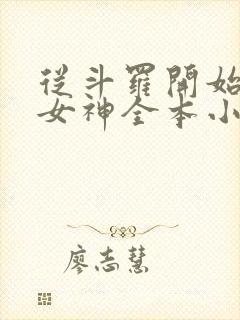 從斗羅開始
女神全本小
廖志慧